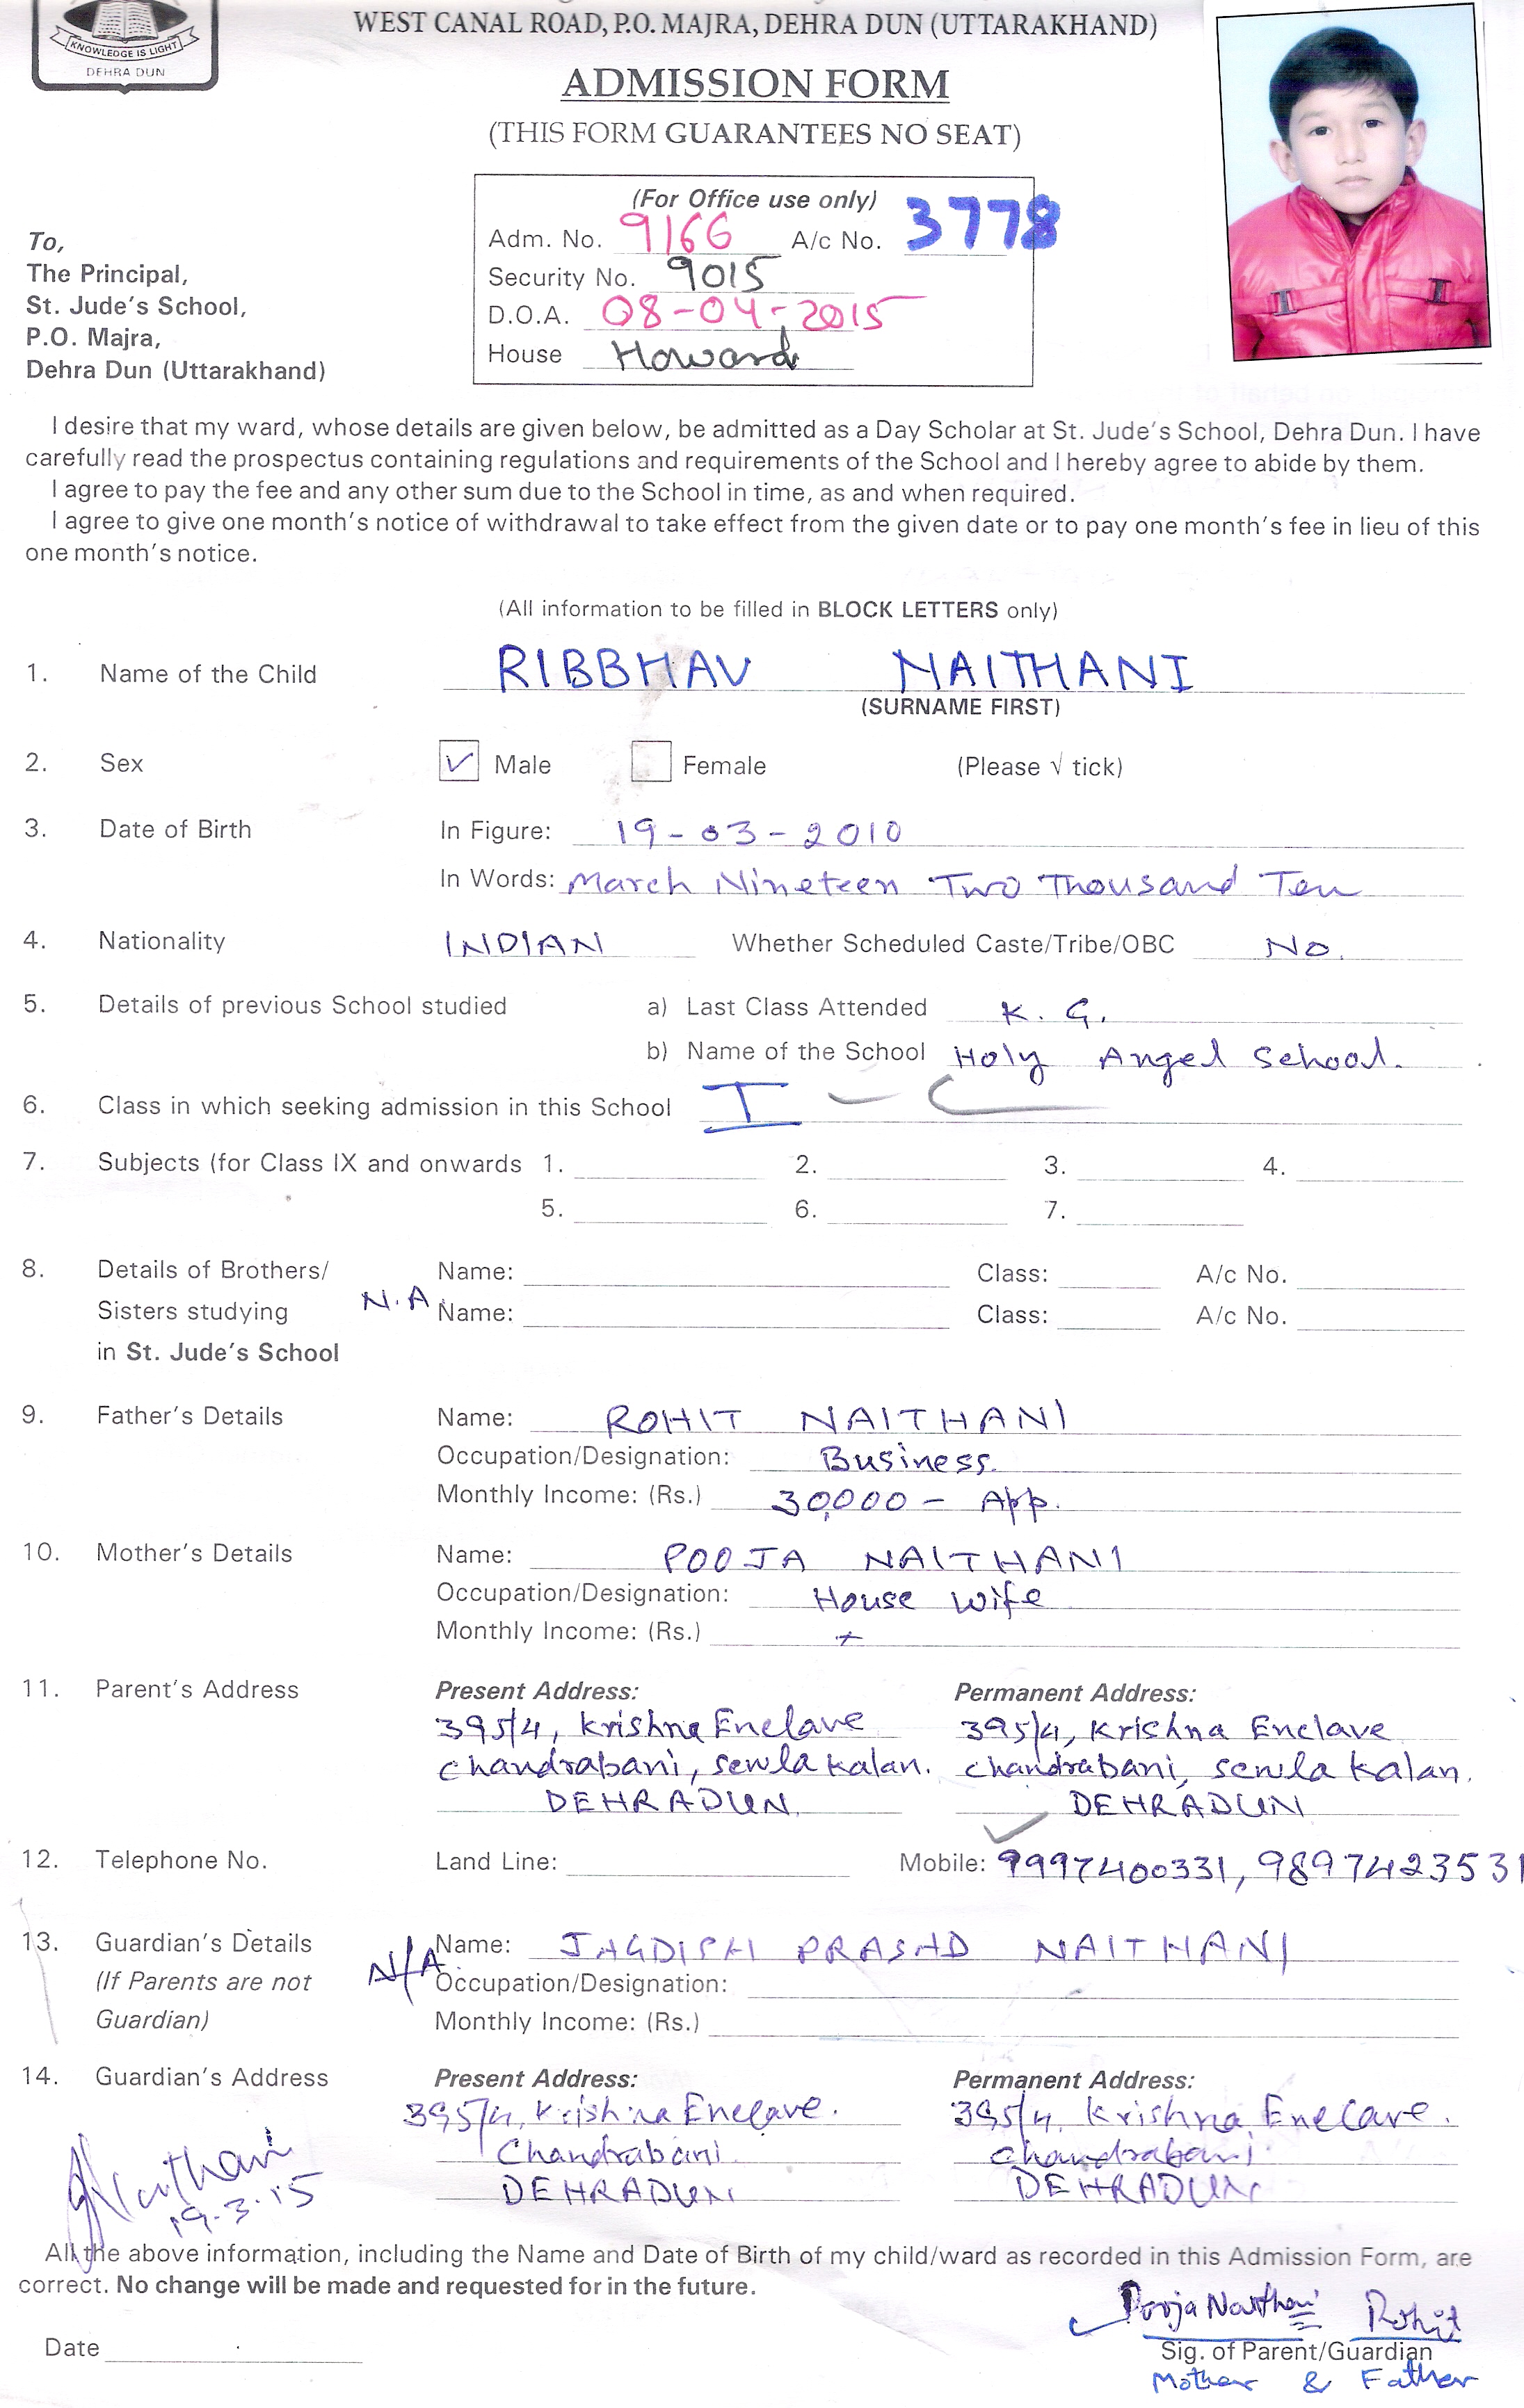 KNOWLEDGE IS LIGHT
DEHRA DUN
WEST CANAL ROAD, P.O. MAJRA, DEHRA DUN (UTTARAKHAND)
ADMISSION FORM
(THIS FORM GUARANTEES NO SEAT)
(For Office use only)
Adm. No. 9166 A/c No. 3778
Security No. 9015
D.O.A. 08-04-2015
House Howard
To,
The Principal,
St. Jude's School,
P.O. Majra,
Dehra Dun (Uttarakhand)
I desire that my ward, whose details are given below, be admitted as a Day Scholar at St. Jude's School, Dehra Dun. I have
carefully read the prospectus containing regulations and requirements of the School and I hereby agree to abide by them.
I agree to pay the fee and any other sum due to the School in time, as and when required.
I agree to give one month's notice of withdrawal to take effect from the given date or to pay one month's fee in lieu of this
one month's notice.
(All information to be filled in BLOCK LETTERS only)
1. Name of the Child RIBBHAV NAITHANI
(SURNAME FIRST)
2. Sex ✓ Male Female (Please √ tick)
3. Date of Birth In Figure: 19-03-2010
In Words: March Nineteen Two Thousand Ten
4. Nationality INDIAN Whether Scheduled Caste/Tribe/OBC No.
5. Details of previous School studied a) Last Class Attended K. G.
b) Name of the School Holy Angel School.
6. Class in which seeking admission in this School I - C
7. Subjects (for Class IX and onwards 1. 2. 3. 4.
5. 6. 7.
8. Details of Brothers/ Name: Class: A/c No.
Sisters studying N.A Name: Class: A/c No.
in St. Jude's School
9. Father's Details Name: ROHIT NAITHANI
Occupation/Designation: Business.
Monthly Income: (Rs.) 30,000 - App.
10. Mother's Details Name: POOJA NAITHANI
Occupation/Designation: House wife
Monthly Income: (Rs.)
11. Parent's Address Present Address: Permanent Address:
395/4, Krishna Enclave 395/4, Krishna Enclave
Chandrabani, sewla kalan. Chandrabani, sewla kalan.
DEHRADUN. DEHRADUN
12. Telephone No. Land Line: Mobile: 9997400331, 9897423531
13. Guardian's Details Name: JAGDISH PRASHAD NAITHANI
(If Parents are not N/A Occupation/Designation:
Guardian) Monthly Income: (Rs.)
14. Guardian's Address Present Address: Permanent Address:
395/4, Krishna Enclave. 395/4, Krishna Enclave.
Chandrabani Chandrabani
DEHRADUN DEHRADUN
Naithani
19.3.15
All the above information, including the Name and Date of Birth of my child/ward as recorded in this Admission Form, are
correct. No change will be made and requested for in the future.
Pooja Naithani Rohit
Date Sig. of Parent/Guardian
Mother & Father